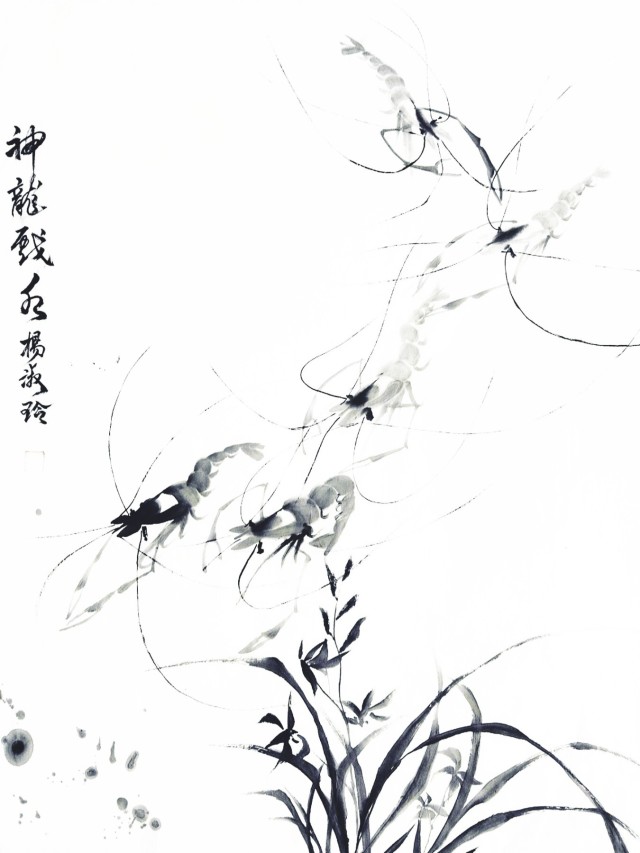 神龍戲水楊淑玲